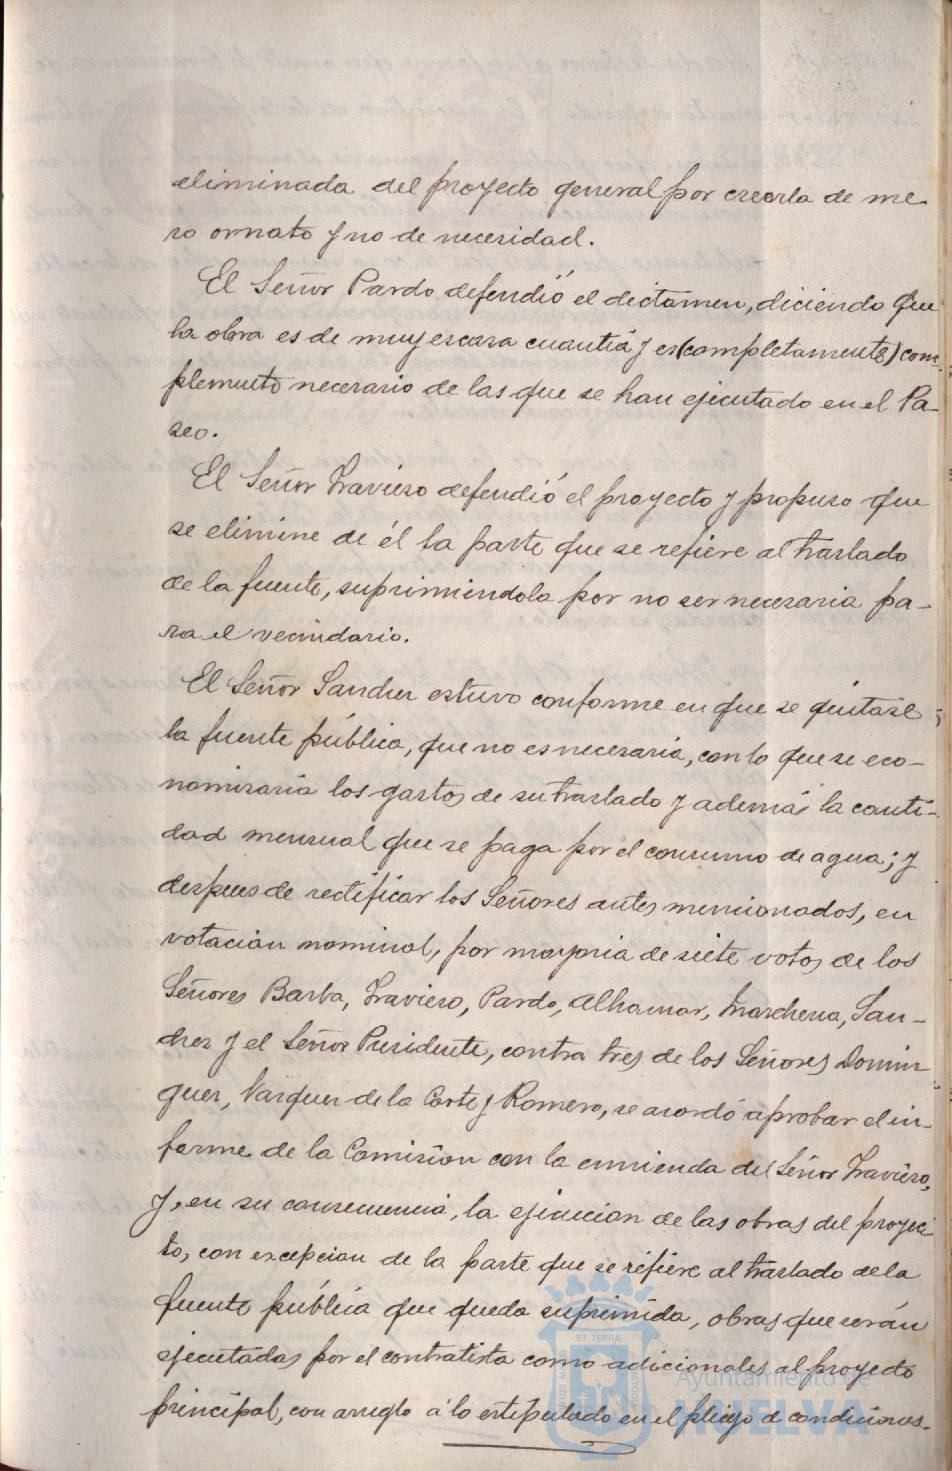 eliminada del proyecto general por creerla de me-
ro ornato y no de necesidad.
El Señor Pardo defendió el dictamen, diciendo que
la obra es de muy escasa cuantia y es (completamente) com-
plemento necesario de las que se han ejecutado en el Pa-
seo.
El Señor Travieso defendió el proyecto y propuso que
se elimine de él la parte que se refiere al traslado
de la fuente, suprimiendola por no ser necesaria pa-
ra el vecindario.
El Señor Sanchez estuvo conforme en que se quitase
la fuente pública, que no es necesaria, con lo que se eco-
nomizaria los gastos de su traslado y además la canti-
dad mensual que se paga por el consumo de agua; y
despues de rectificar los Señores antes mencionados, en
votacion nominal, por mayoria de siete votos de los
Señores Barba, Travieso, Pardo, Alhamar, Marchena, San-
chez y el Señor Presidente, contra tres de los Señores Domin-
guez, Vazquez de la Corte y Romero, se acordó aprobar el in-
forme de la Comision con la enmienda del Señor Travieso,
y, en su consecuencia, la ejecucion de las obras del proyec-
to, con excepcion de la parte que se refiere al traslado de la
fuente pública que queda suprimida, obras que serán
ejecutadas por el contratista como adicionales al proyecto
principal, con arreglo á lo estipulado en el pliego de condiciones.
ET TERRÆ
Ayuntamiento de
HUELVA